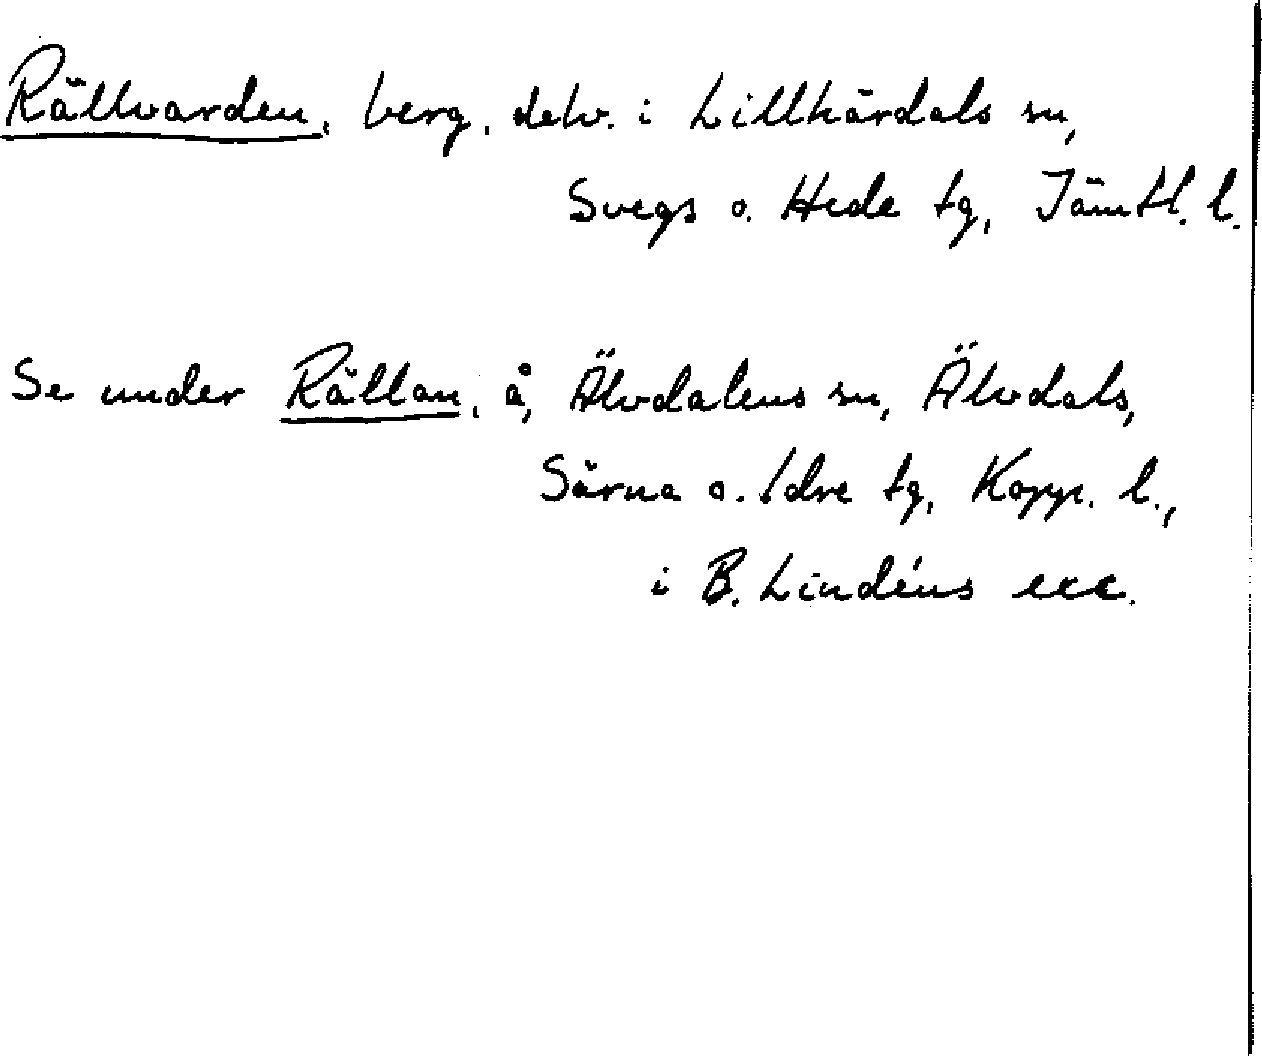 Rällvarden, berg, delv. i Lillhärdals sn,
Svegs o. Hede tg, Jämtl. l.
Se under Rällan, å, Älvdalens sn, Älvdals,
Särna o. Idre tg, Kopp. l.,
i B. Lindéns exc.